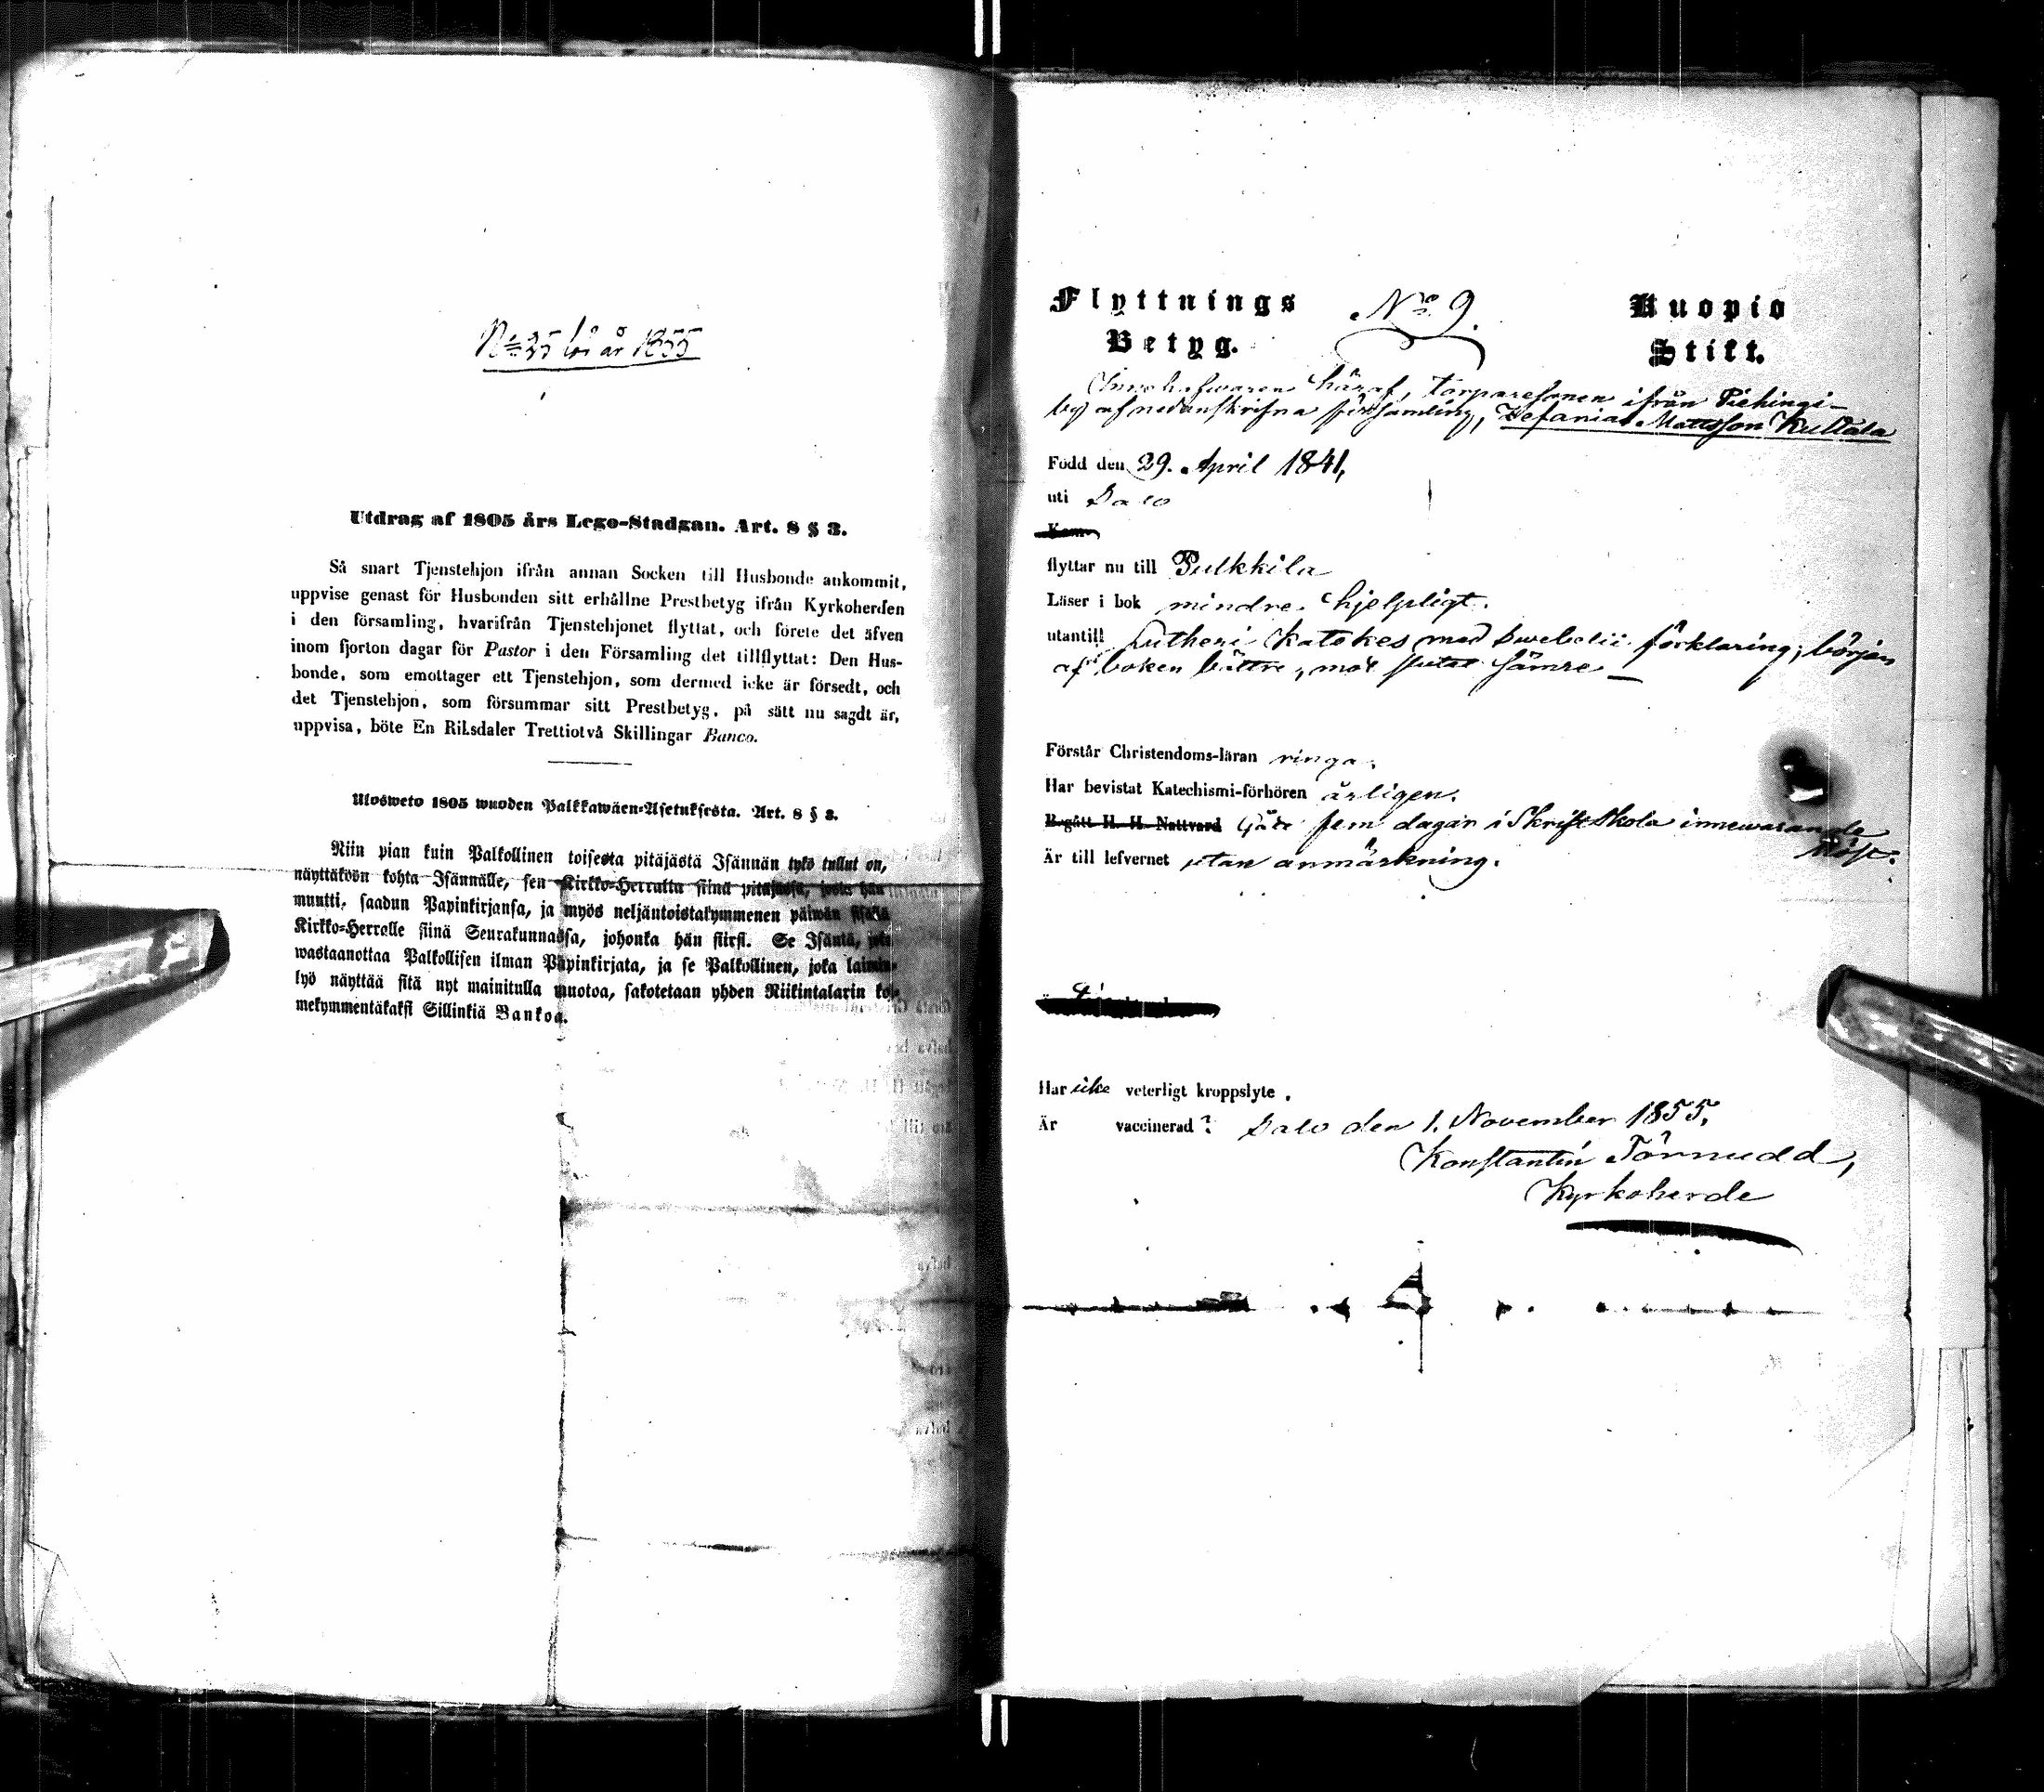 No 35 för år 1855
Utdrag af 1805 års Lego-Stadgan. Art. 8 § 3.
Så snart Tjenstehjon ifrån annan Socken till Husbonde ankommit,
uppvise genast för Husbonden sitt erhållne Prestbetyg ifrån Kyrkoherden
i den församling, hvarifrån Tjenstehjonet flyttat, och förete det äfven
inom fjorton dagar för Pastor i den Församling det tillflyttat: Den Hus-
bonde, som emottager ett Tjenstehjon, som dermed icke är försedt, och
det Tjenstehjon, som försummar sitt Prestbetyg, på sätt nu sagdt är,
uppvisa, böte En Riksdaler Trettiotvå Skillingar Banco.
Ulosweto 1805 wuoden Palkkawäen-Asetuksesta. Art. 8 § 3.
Niin pian kuin Palkollinen toisesta pitäjästä Isännän tykö tullut on,
näyttäköön kohta Isännälle, sen Kirkko-Herralta siinä pitäjässä, josta hän
muutti, saadun Papinkirjansa, ja myös neljäntoistakymmenen päiwän sisällä
Kirkko-Herralle siinä Seurakunnassa, johonka hän siirsi. Se Isäntä, joka
wastaanottaa Palkollisen ilman Papinkirjata, ja se Palkollinen, joka laimin-
lyö näyttää sitä nyt mainitulla muotoa, sakotetaan yhden Riikintalarin kol-
mekymmentäkaksi Sillinkiä Bankoa.
Flyttnings No 9. Kuopio
Betyg. Stift.
Innehafwaren häraf, torparesonen ifrån Piehingi-
by af nedanskrifna församling, Zefanias Mattsson Kultala
Född den 29. April 1841,
uti Salo
flyttar nu till Pulkkila
Läser i bok mindre hjelpligt.
utantill Lutheri Katekes med Swebelii förklaring, början
af boken bättre, mot slutet sämre
Förstår Christendoms-läran ringa.
Har bevistat Katechismi-förhören årligen.
Begått H. H. Nattvard fem dagar i Skriftskola innewarande
höst.
Är till lefvernet utan anmärkning.
Har icke veterligt kroppslyte.
Är vaccinerad? Salo den 1. November 1855.
Konstantin Törnudd,
Kyrkoherde